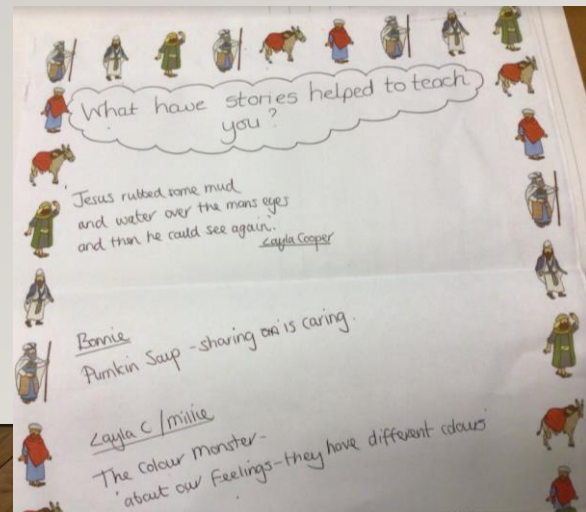 What have stories helped to teach
you?
'Jesus rubbed some mud
and water over the mans eyes
and then he could see again.'
Layla Cooper
Bonnie
Pumkin Soup - sharing is caring.
Layla C / millie
The colour monster-
'about our feelings-they have different colours'